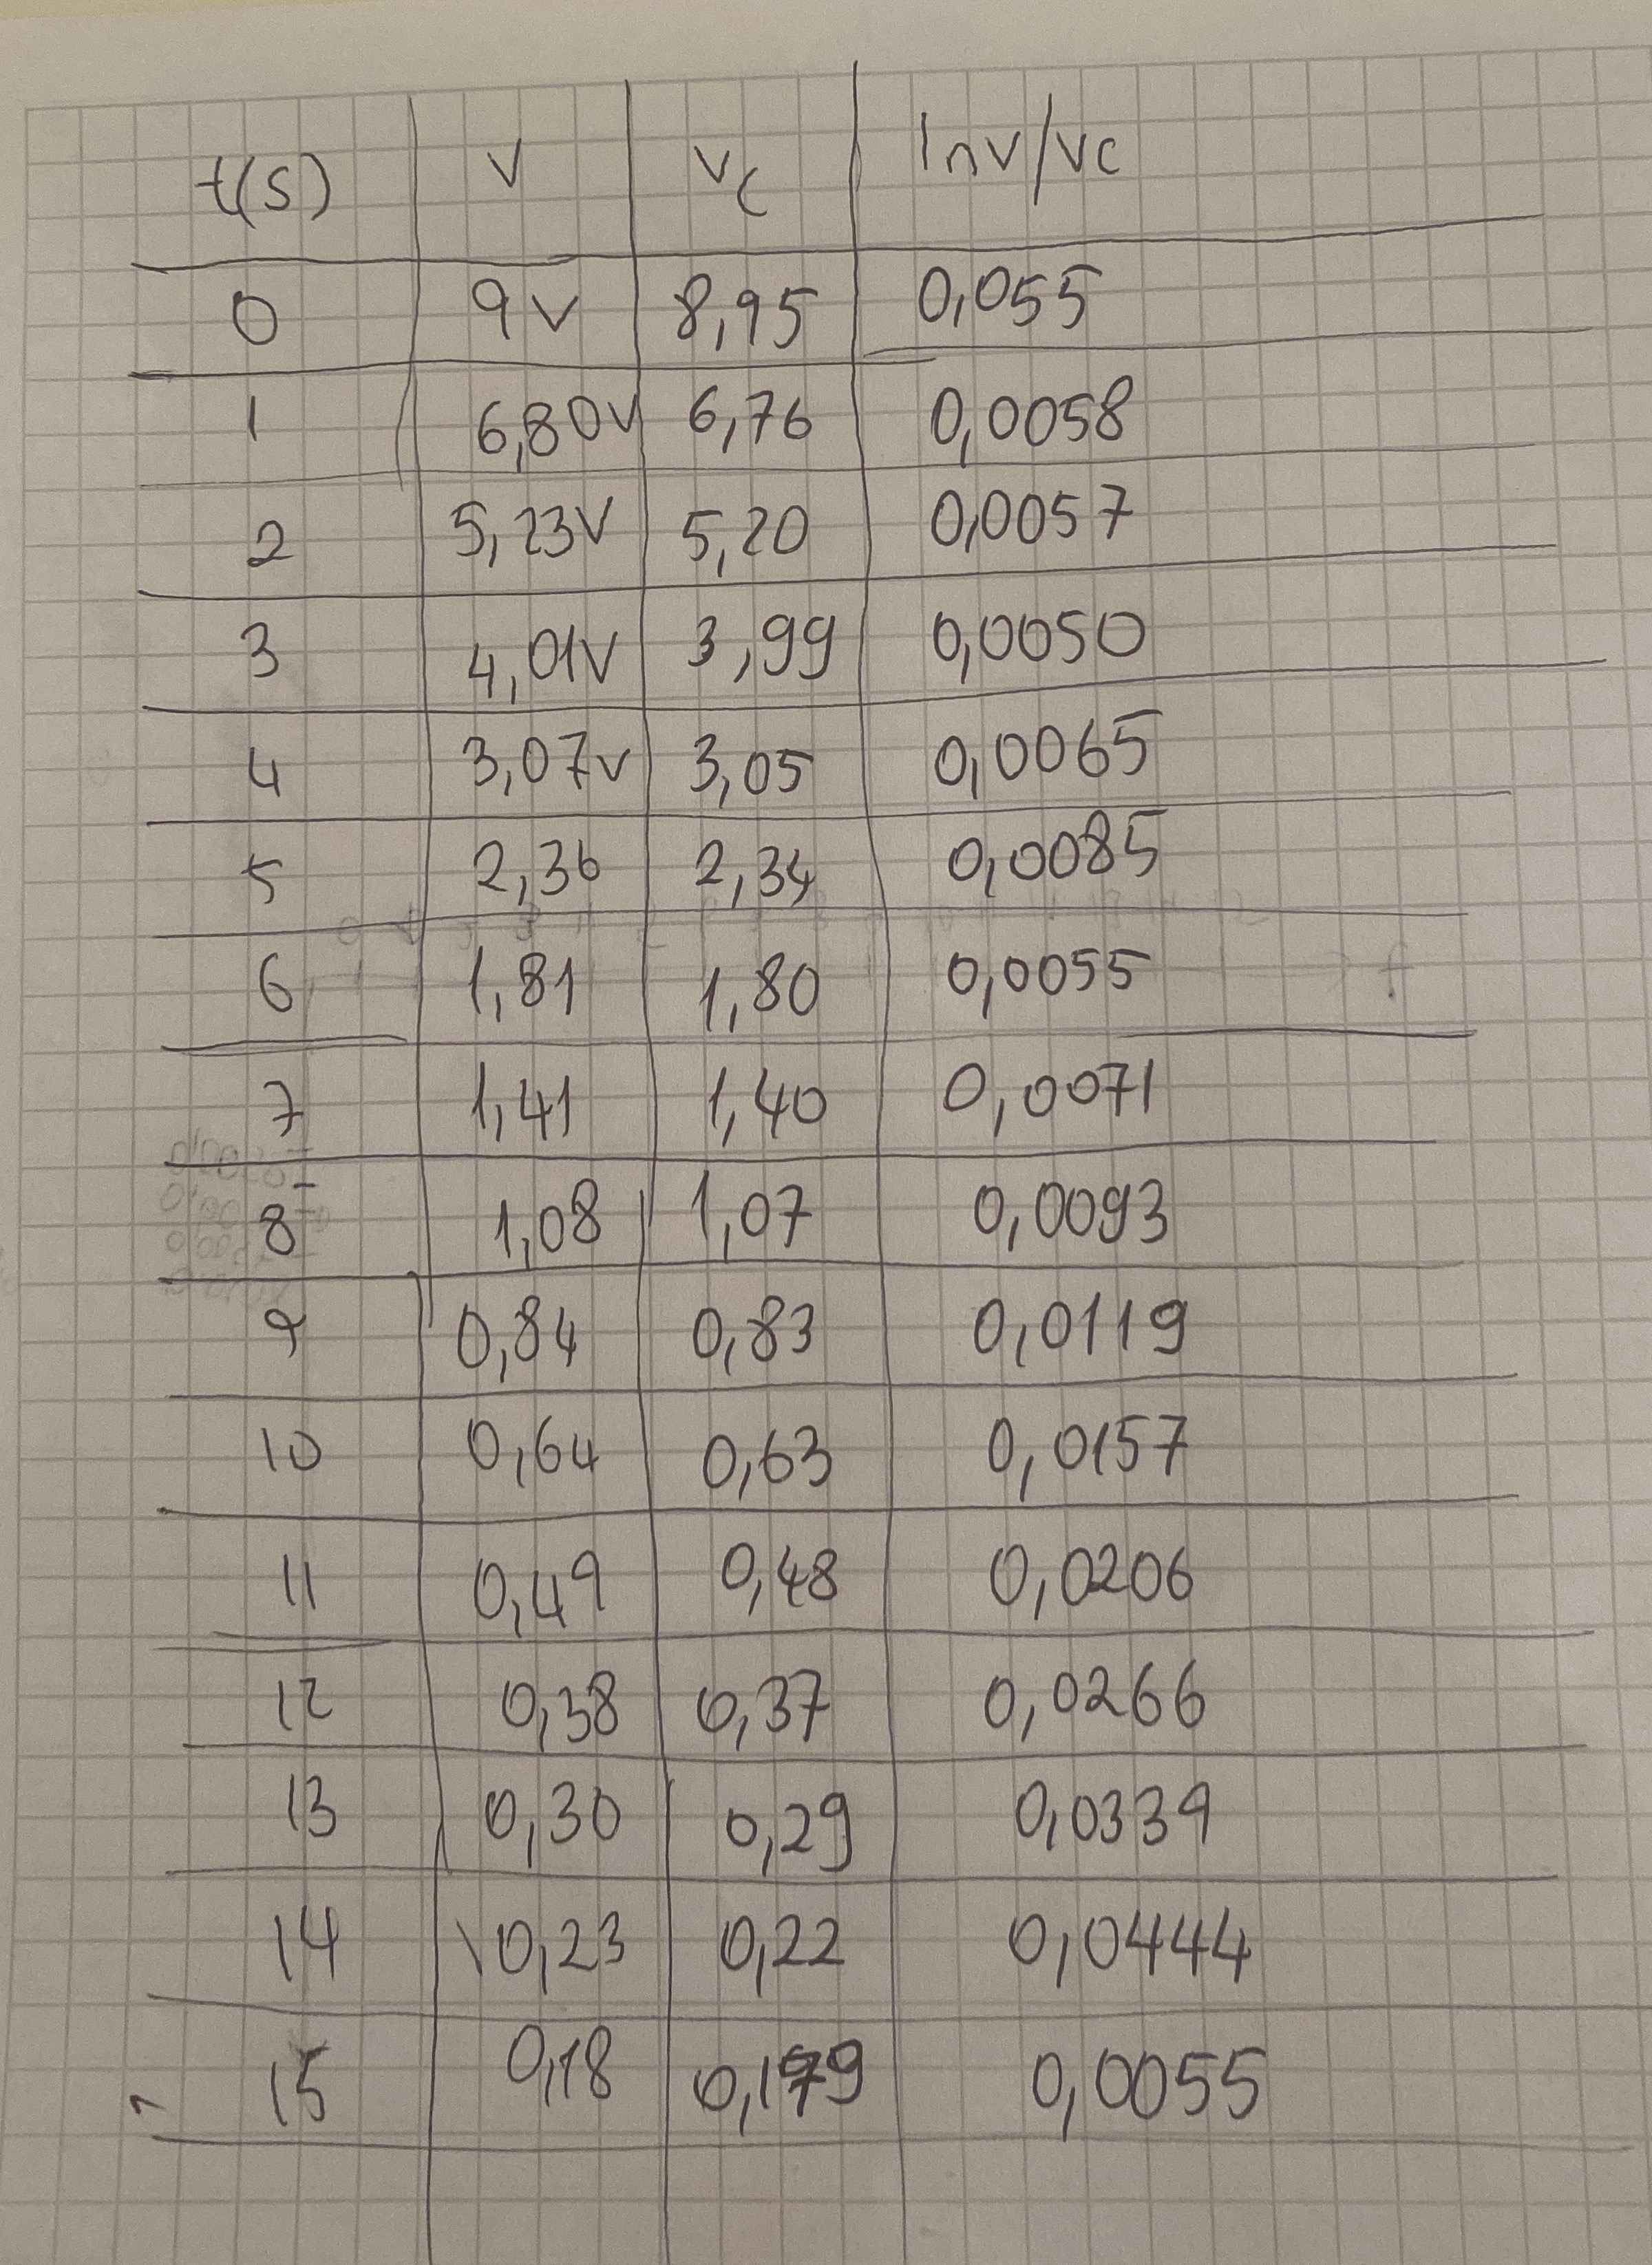 t(s) V Vc lnV/Vc
0 9V 8,95 0,055
1 6,80V 6,76 0,0058
2 5,23V 5,20 0,0057
3 4,01V 3,99 0,0050
4 3,07V 3,05 0,0065
5 2,36 2,34 0,0085
6 1,81 1,80 0,0055
7 1,41 1,40 0,0071
8 1,08 1,07 0,0093
9 0,84 0,83 0,0119
10 0,64 0,63 0,0157
11 0,49 0,48 0,0206
12 0,38 0,37 0,0266
13 0,30 0,29 0,0339
14 0,23 0,22 0,0444
15 0,18 0,179 0,0055